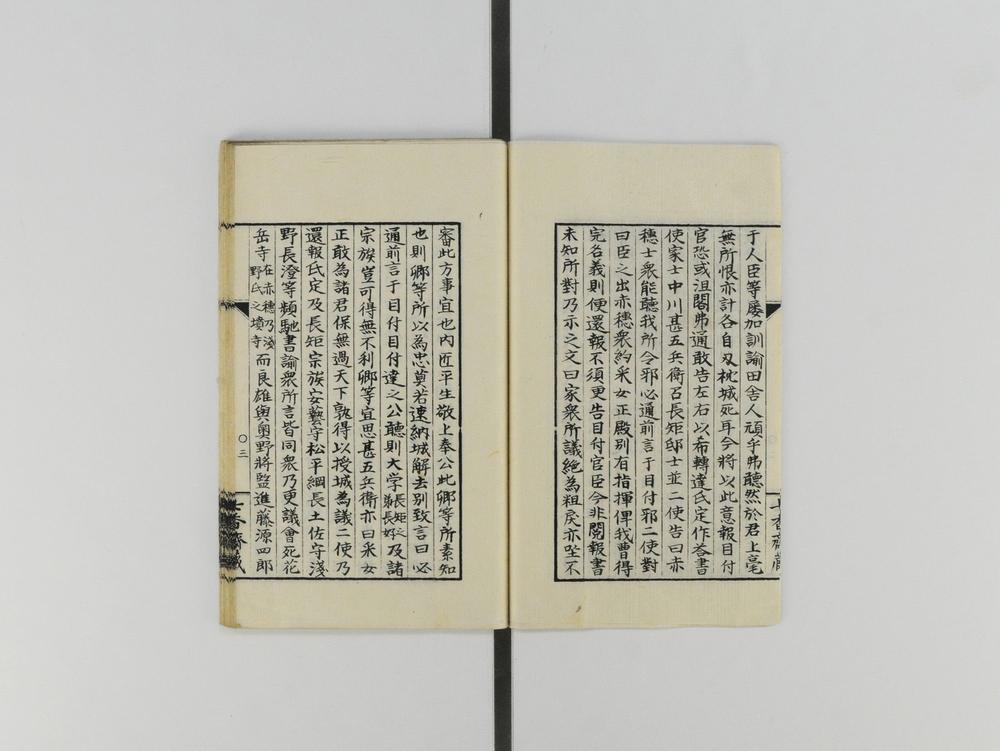 于人臣等屡加訓諭田舎人頑乎弗聽然於君上毫
無所恨亦計各自刄枕城死耳今將以此意報目付
官恐或沮閣弗通敢告左右以希轉達氏定作荅書
使家士中川甚五兵衛召長矩邸士並二使告曰赤
穗士衆能聽我所令邪必通前言于目付邪二使對
曰臣之出赤穗衆約采女正殿別有指揮俾我曹得
完名義則便還報不須更告目付官臣今非閲報書
未知所對乃示之文曰家衆所議絶為粗戻亦坐不
審此方事宜也内匠平生敬上奉公此卿等所素知
也則卿等所以為忠莫若速納城解去別致言曰必
通前言于目付目付達之公聽則大学長矩之弟長好及諸
宗族豈可得無不利卿等宜思甚五兵衛亦曰采女
正敢為諸君保無過天下孰得以授城為議二使乃
還報氏定及長矩宗族安藝守松平綱長土佐守淺
野長澄等頻馳書諭衆所言皆同衆乃更議會死花
岳寺在赤穗乃淺野氏之墳寺而良雄與奧野將監進藤源四郎
〇三